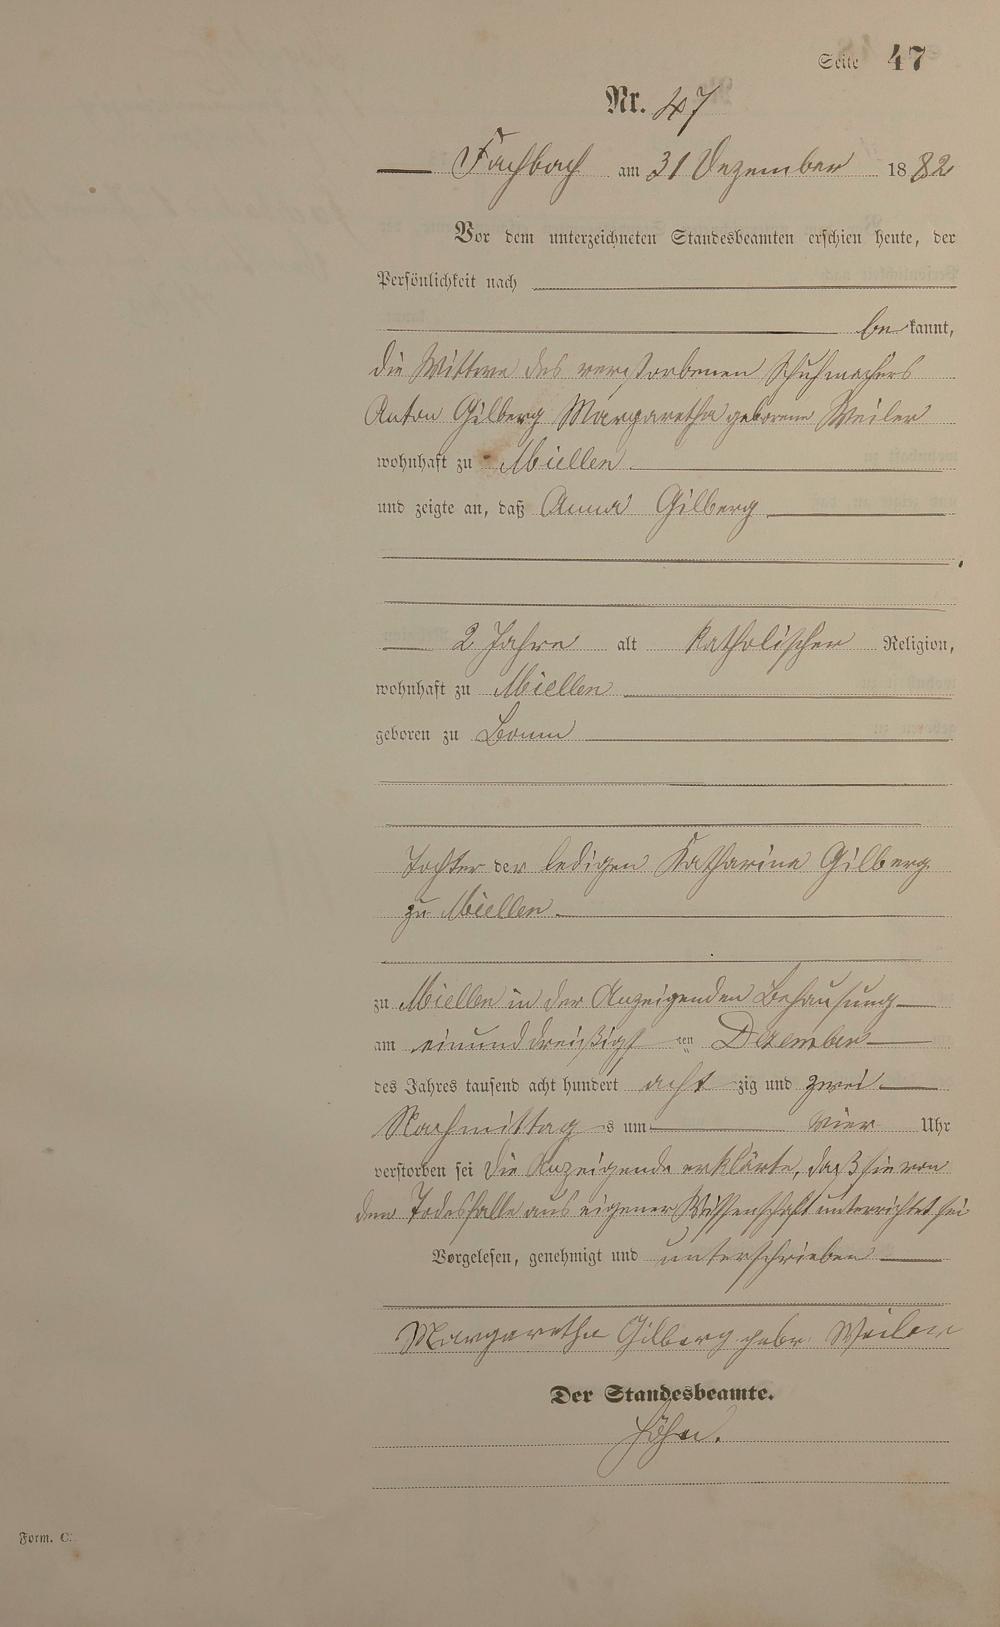 Seite 47
Nr. 47
Fachbach am 31 Dezember 1882
Vor dem unterzeichneten Standesbeamten erschien heute, der
Persönlichkeit nach
be kannt,
die Wittwe des verstorbenen Schuhmachers
Anton Gilberg Margaretha geborene Weiler
wohnhaft zu Miellen
und zeigte an, daß Anna Gilberg
2 Jahre alt katholischer Religion,
wohnhaft zu Miellen
geboren zu Bonn
Tochter der ledigen Katharina Gilberg
zu Miellen
zu Miellen in der Anzeigenden Behausung
am einunddreißigst ten Dezember
des Jahres tausend acht hundert acht zig und zwei
Nachmittag s um vier Uhr
verstorben sei Die Anzeigende erklärte, daß sie von
dem Todesfalle aus eigener Wissenschaft unterrichtet sei
Vorgelesen, genehmigt und unterschrieben
Margaretha Gilberg gebr. Weiler
Der Standesbeamte.
Höhn.
Form. C.